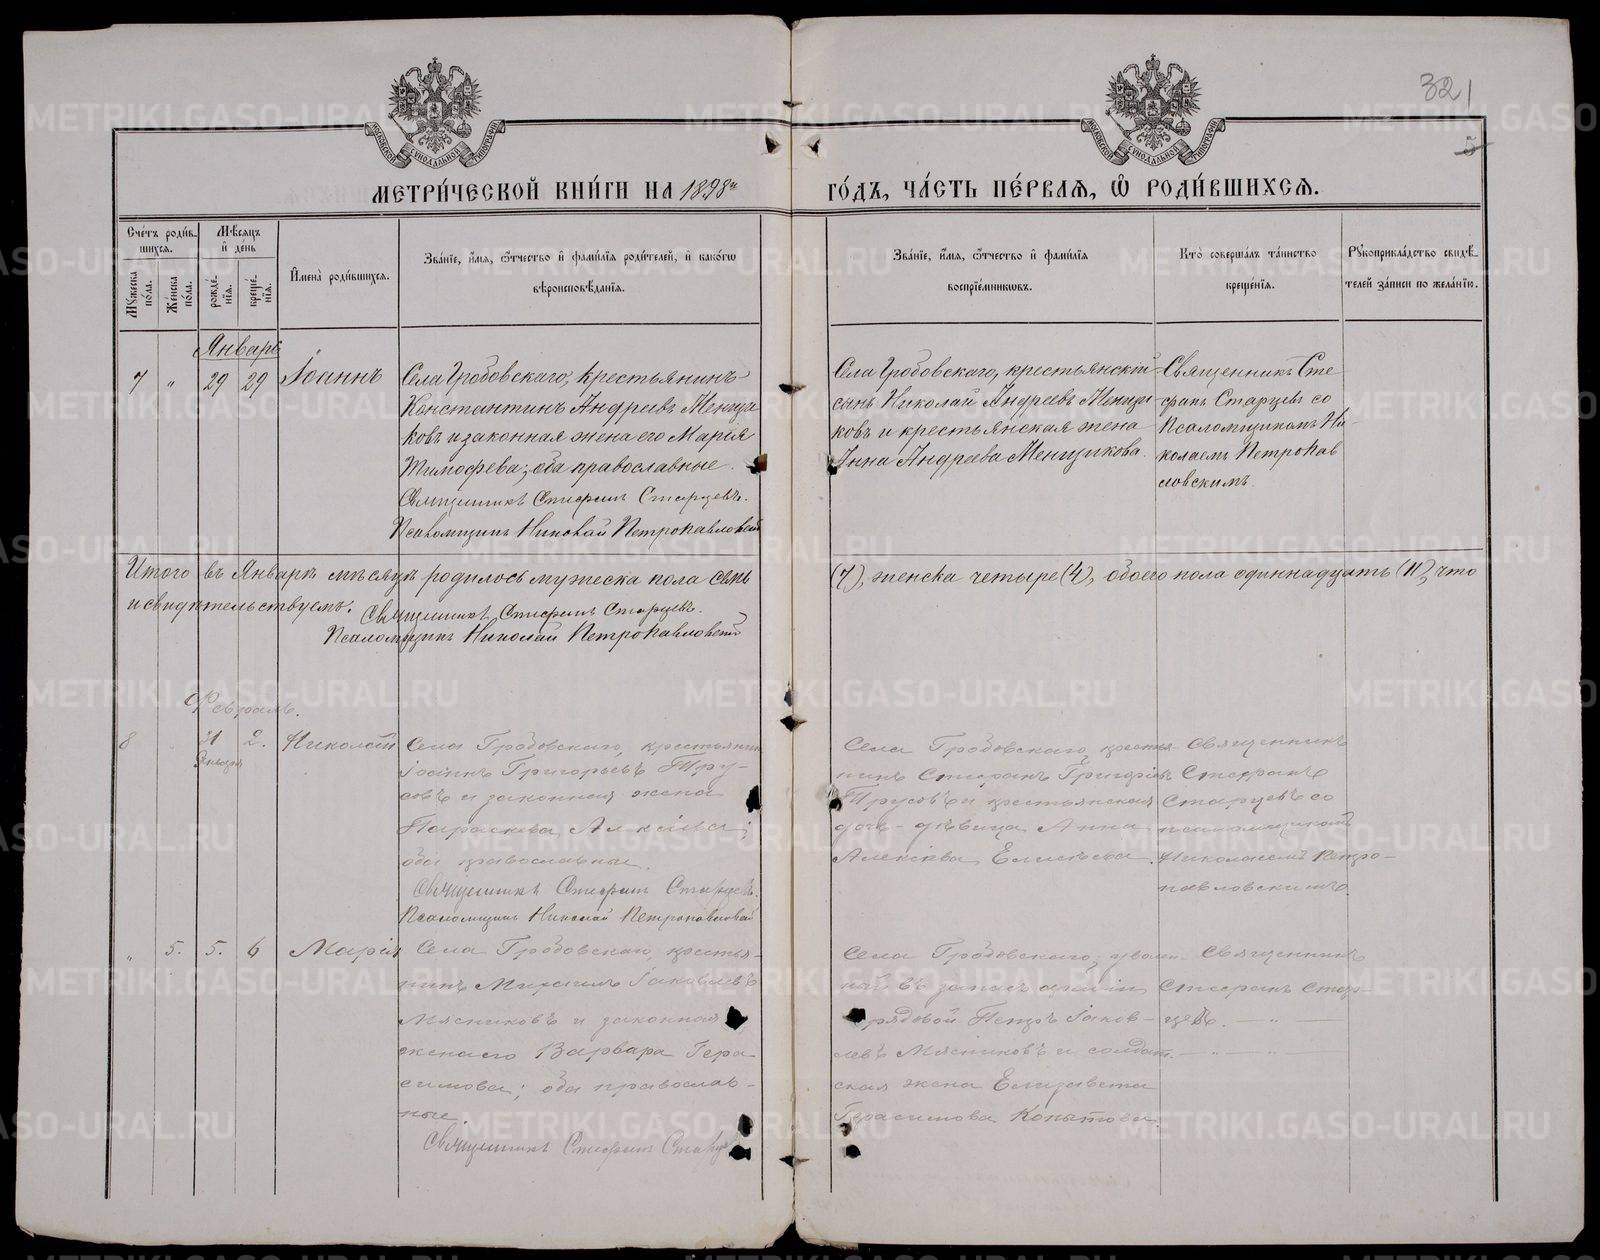 321
5
МОСКОВСКОЙ СѴНОДАЛЬНОЙ ТИПОГРАФІИ
МОСКОВСКОЙ СѴНОДАЛЬНОЙ ТИПОГРАФІИ
МЕТРИ́ЧЕСКОЙ КНИ́ГИ НА 1898й ГО́ДЪ, ЧА́СТЬ ПЕ́РВАѦ, Ѽ РОДИ́ВШИХСѦ.
Сче́тъ роди́в-
шихсѧ.
Мꙋ́жеска по́ла.
Же́нска по́ла.
Мѣ́сѧцъ
и҆ де́нь
рожде́-
нїѧ.
креще́-
нїѧ.
И҆мена̀ роди́вшихсѧ.
Зва́нїе, и҆́мѧ, ѻ҆́тчество и҆ фами́лїѧ роди́телей, и҆ како́гѡ
вѣроисповѣ́данїѧ.
Зва́нїе, и҆́мѧ, ѻ҆́тчество и҆ фами́лїѧ
воспрїе́мникѡвъ.
Кто̀ соверша́лъ та́инство
креще́нїѧ.
Рꙋкоприкла́дство свидѣ́-
телей за́писи по жела́нїю.
Январь
7 " 29 29 Іоаннъ
Села Гробовскаго, крестьянинъ
Константинъ Андреевъ Менщи
ковъ и законная жена его Марія
Тимофеева; оба православные.
Священникъ Стефанъ Старцевъ.
Псаломщикъ Николай Петропавловскій
Села Гробовскаго, крестьянскій
сынъ Николай Андреевъ Менщи
ковъ и крестьянская жена
Анна Андреева Менщикова.
Священникъ Сте
фанъ Старцевъ со
Псаломщикомъ Ни
колаемъ Петропав
ловскимъ.
Итого въ Январѣ мѣсяцѣ родилось мужеска пола семь (7), женска четыре (4), обоего пола одиннадцать (11), что
и свидѣтельствуемъ. Священникъ Стефанъ Старцевъ.
Псаломщикъ Николай Петропавловскій
Февраль.
8 " 31 2. Николай
Января
Села Гробовскаго, крестьянинъ
Іоаннъ Григорьевъ Тру-
совъ и законная жена
Параскева Алексѣева;
оба православные.
Священникъ Стефанъ Старцевъ.
Псаломщикъ Николай Петропавловскій
Села Гробовскаго, крестья-
нинъ Стефанъ Григорьевъ
Трусовъ и крестьянская
дочь-дѣвица Анна
Алексѣева Елисѣева.
Священникъ
Стефанъ
Старцевъ со
псаломщикомъ
Николаемъ Петро-
павловскимъ.
" 5. 5. 6 Марія
Села Гробовскаго, крестья-
нинъ Михаилъ Іаковлевъ
Мясниковъ и законная
жена его Варвара Гера-
симова; оба православ-
ные
Священникъ Стефанъ Старцевъ
Села Гробовскаго, уволен-
ный въ запасъ арміи
рядовой Петръ Іаков-
левъ Мясниковъ и солдат-
ская жена Елизавета
Герасимова Копытова.
Священникъ
Стефанъ Стар-
цевъ. — " —
— " — " —